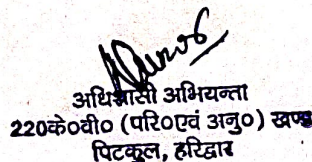 अधिशासी अभियन्ता
220के०वी० (परि०एवं अनु०) खण्ड
पिटकुल, हरिद्वार